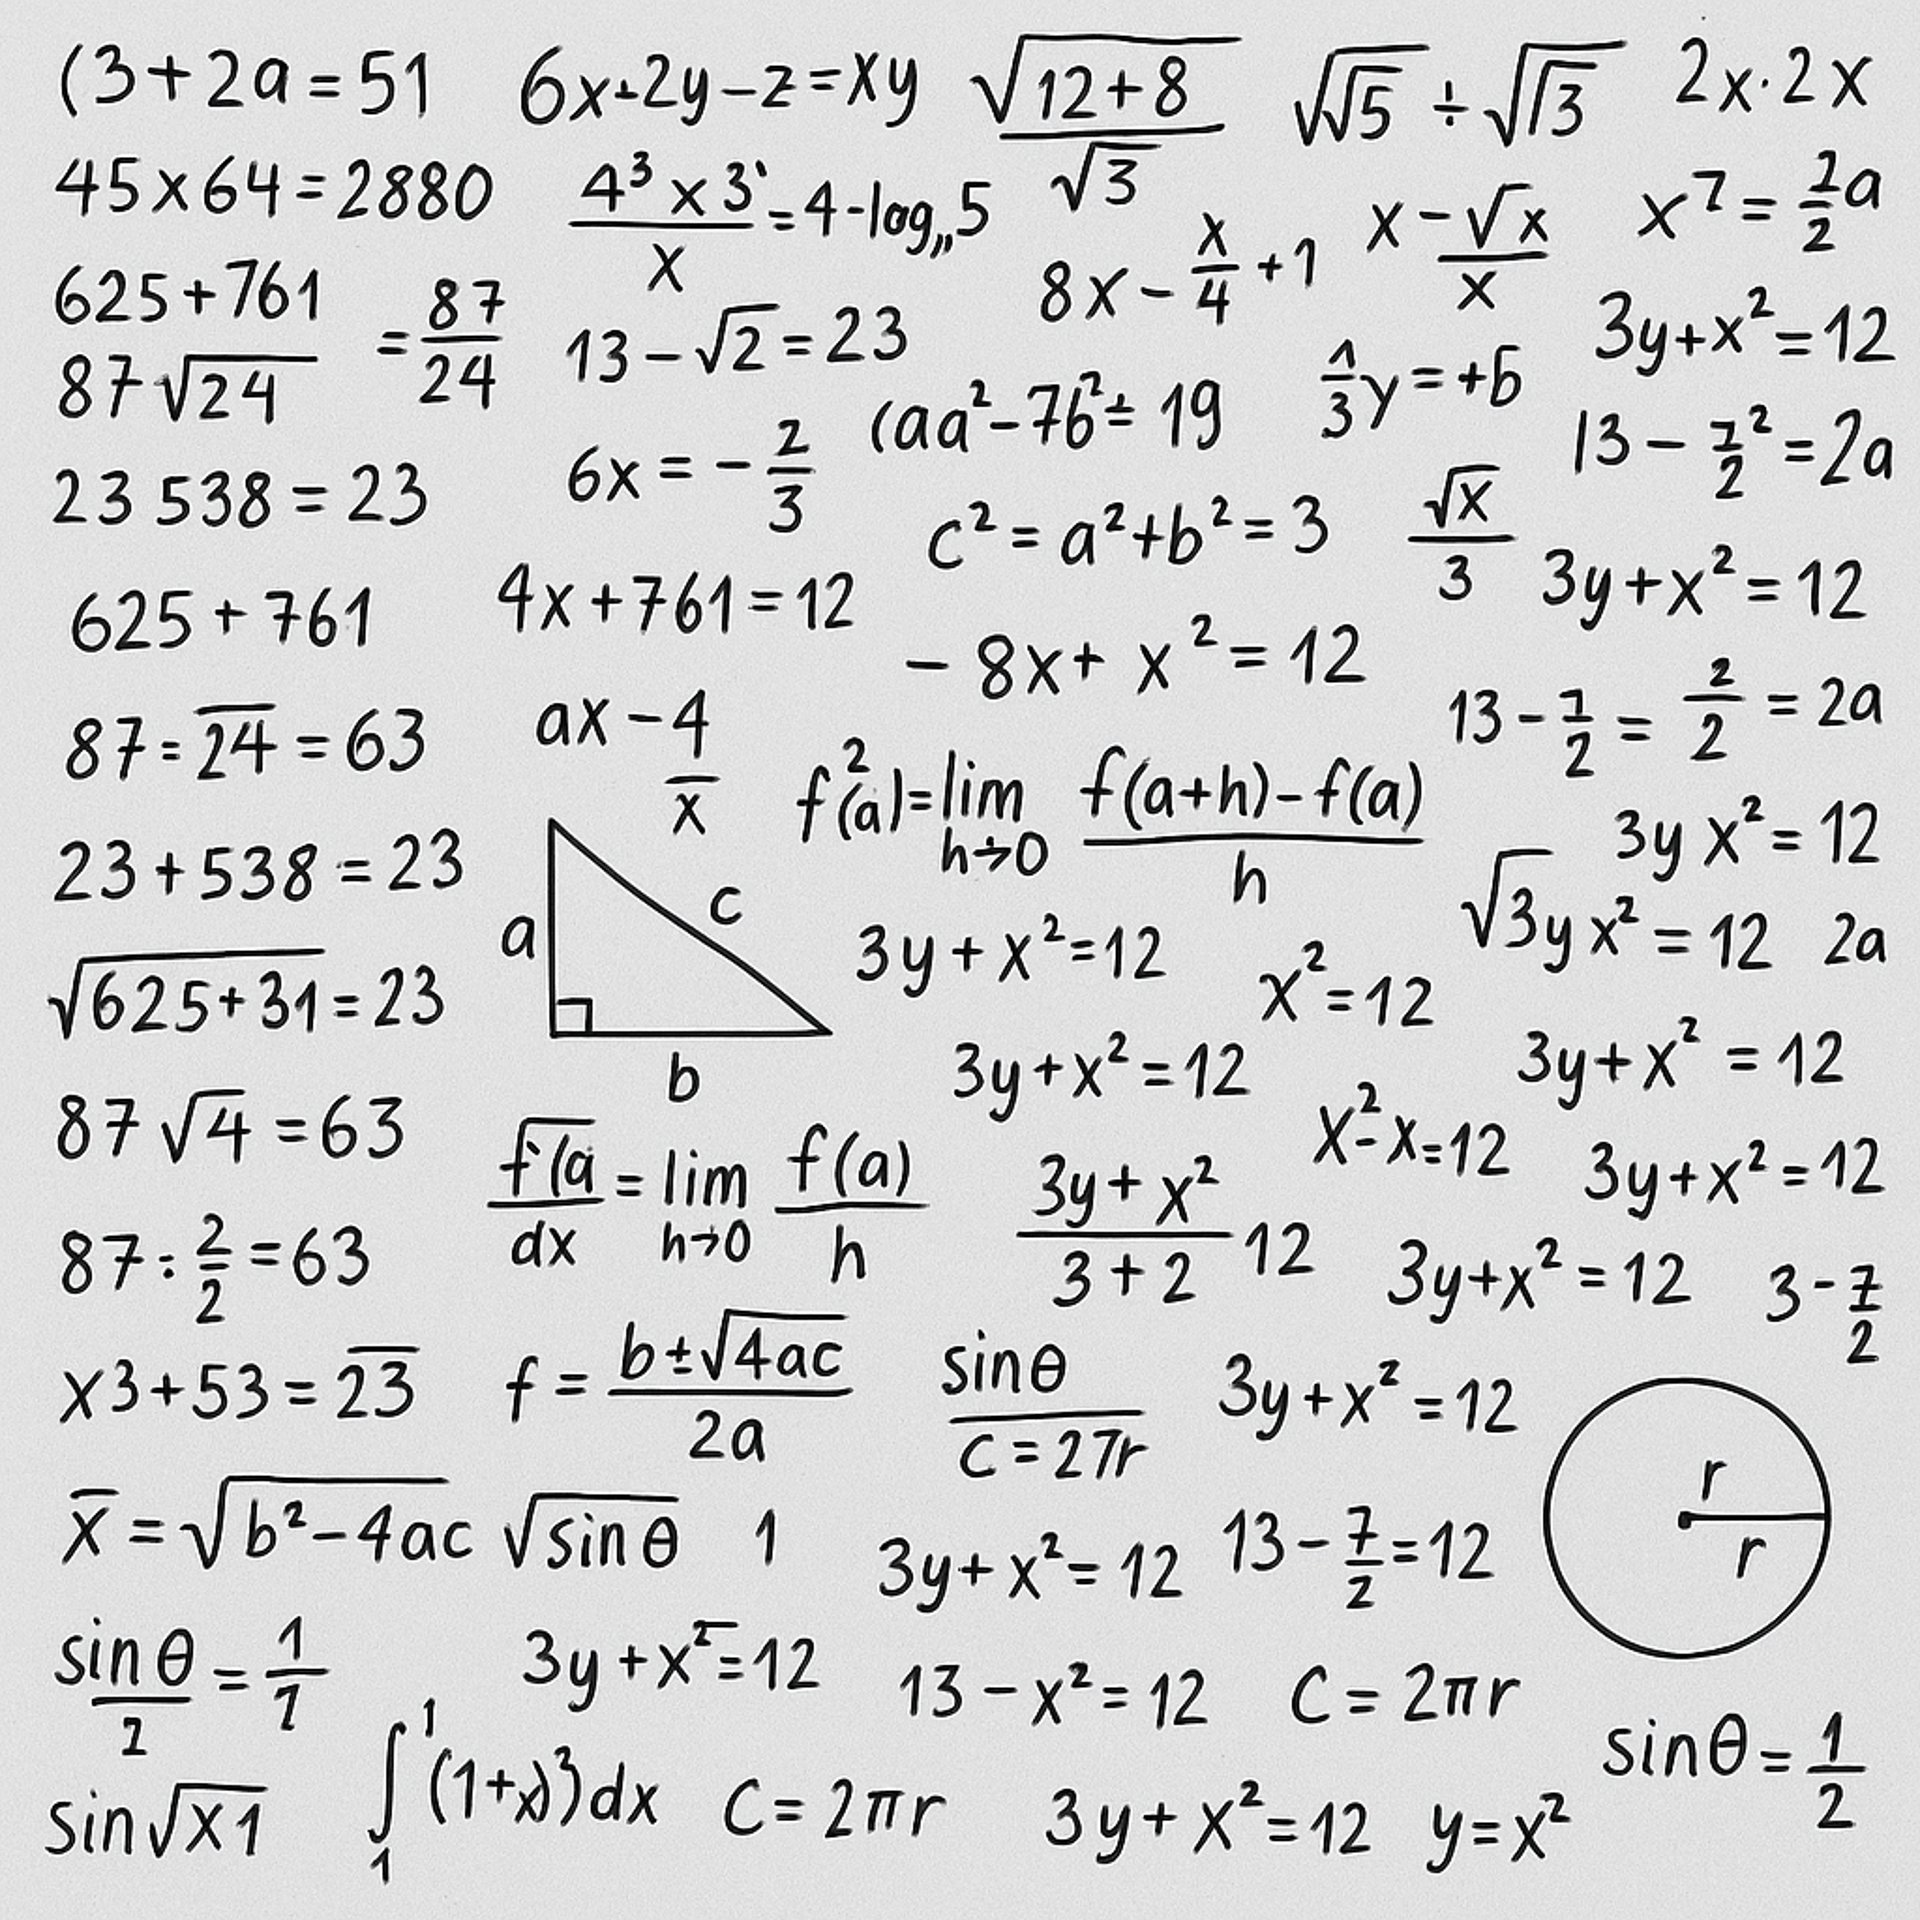 (3+2a=51 6x+2y−z=xy √(12+8)/√3 √√5 ÷ √√3 2x·2x
45×64=2880 (4³×3')/x=4-log,,,5 8x−x/4+1 x−√x/x x⁷=1/2a
625+761
87√24 =87/24 13−√2=23 3y+x²=12
(aa²−7b²= 19 1/3y=+b 13−7/2²=2a
23 538=23 6x=−2/3
c²=a²+b²=3 √x/3 3y+x²=12
625+761 4x+761=12
−8x+x²=12
87=24=63 ax−4/x 13−7/2=2/2=2a
f²(a)=lim h→0 (f(a+h)−f(a))/h 3y x²=12
23+538=23 a c b
√3y x²=12 2a
√(625+31)=23 3y+x²=12 x²=12
3y+x²=12 3y+x²=12
87√4=63 f'(a/dx=lim h→0 f(a)/h x²-x=12
(3y+x²)/(3+2) 12 3y+x²=12
87÷2/2=63 3y+x²=12 3−7/2
x3+53=23 f=(b±√4ac)/2a sinθ/C=27r 3y+x²=12
r
r
x̄=√(b²−4ac) √sinθ 1 3y+x²=12 13−7/2=12
sinθ/2=1/1 3y+x²=12 13−x²=12 C=2πr
sinθ=1/2
sin√x1 ∫₁¹(1+x)³dx C=2πr 3y+x²=12 y=x²